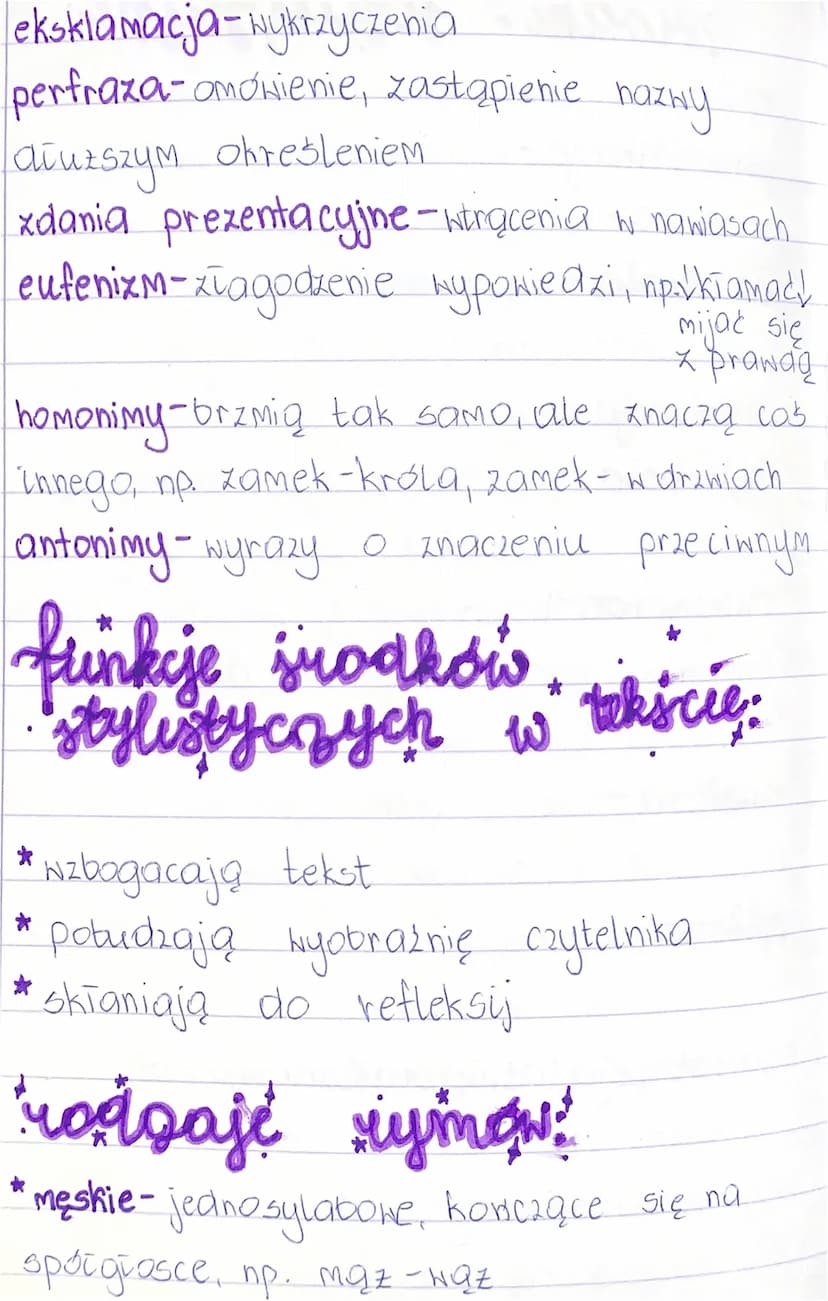 eksklamacja-wykrzyczenia
perfraza-omówienie, zastąpienie nazwy
dłuższym określeniem
zdania prezentacyjne-wtrącenia w nawiasach
eufenizm-złagodzenie wypowiedzi, np. kłamać
mijać się
z prawdą
homonimy-brzmią tak samo, ale znaczą coś
innego, np. zamek-króla, zamek-w drzwiach
antonimy-wyrazy o znaczeniu przeciwnym
funkcje środków
stylistycznych w tekście:
*wzbogacają tekst
*pobudzają wyobraźnię czytelnika
*skłaniają do refleksij
rodzaje rymów:
*męskie-jednosylabowe, kończące się na
spółgłosce, np. mąż-wąż